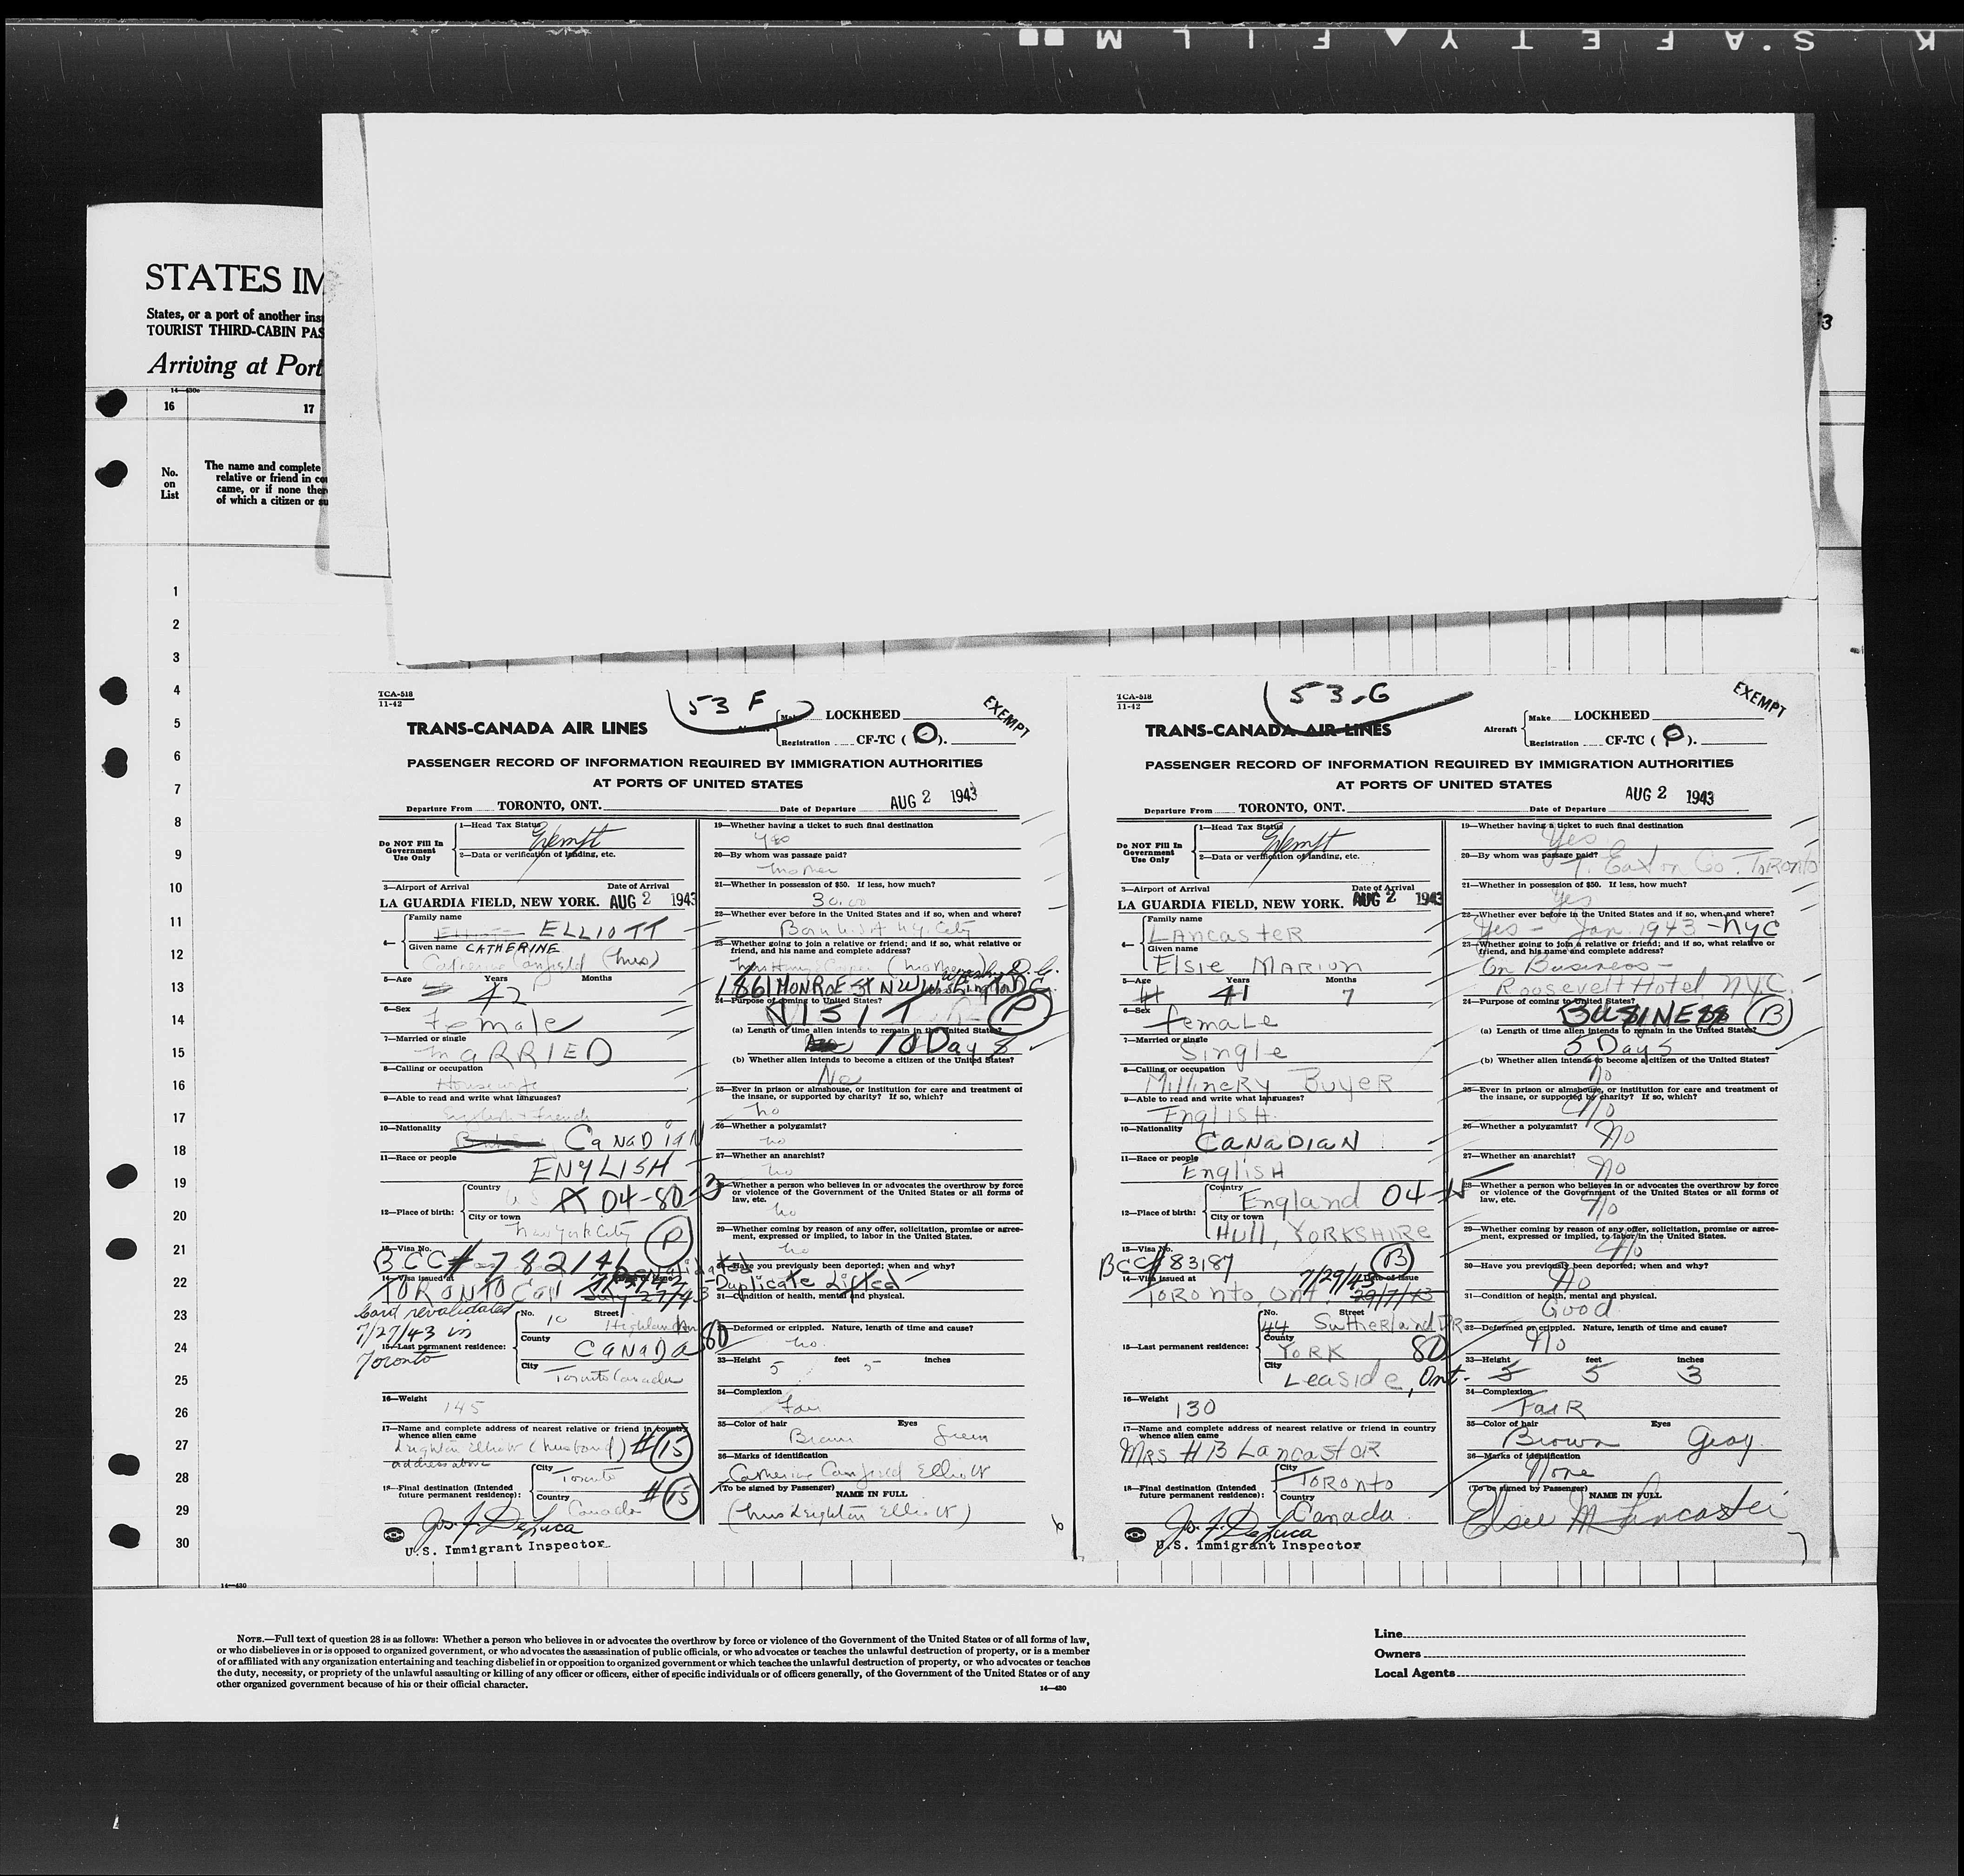 K S.A F E T Y ▲ F I L M ■■
STATES IM
States, or a port of another ins
TOURIST THIRD-CABIN PAS
Arriving at Port
3
14—430c
16 17
No. on List
The name and complete
relative or friend in co
came, or if none ther
of which a citizen or su
1
2
3
4
5
6
7
8
9
10
11
12
13
14
15
16
17
18
19
20
21
22
23
24
25
26
27
28
29
30
TCA-518
11-42
53 F
EXEMPT
TRANS-CANADA AIR LINES
Make LOCKHEED
Registration CF-TC ( O ).
PASSENGER RECORD OF INFORMATION REQUIRED BY IMMIGRATION AUTHORITIES
AT PORTS OF UNITED STATES
Departure From TORONTO, ONT. Date of Departure AUG 2 1943
Do NOT Fill In Government Use Only
1—Head Tax Status Exempt
2—Data or verification of landing, etc.
3—Airport of Arrival Date of Arrival
LA GUARDIA FIELD, NEW YORK. AUG 2 1943
4— Family name ELLIOTT
Given name CATHERINE
Catherine Canfield (Mrs)
5—Age Years Months
42
6—Sex
Female
7—Married or single
MARRIED
8—Calling or occupation
Housewife
9—Able to read and write what languages?
English + French
10—Nationality
CANADIAN
11—Race or people
ENYLISH
12—Place of birth: Country
04-80-3
City or town
New York City
13—Visa No. P
BCC# 782146
14—Visa issued at Date of Issue
TORONTO Can July 27/43
Card revalidated
7/27/43 in
Toronto
15—Last permanent residence: No. Street
10 Highland
County
CANADA 80
City
Toronto Canada
16—Weight
145
17—Name and complete address of nearest relative or friend in country
whence alien came
Leighton Elliott (husband) #15
address above
18—Final destination (Intended future permanent residence): City
Toronto
Country #15
Canada
Jos. F. DeLuca
U.S. Immigrant Inspector
19—Whether having a ticket to such final destination
yes
20—By whom was passage paid?
Mother
21—Whether in possession of $50. If less, how much?
30.00
22—Whether ever before in the United States and if so, when and where?
Born U.S.A N.Y. City
23—Whether going to join a relative or friend; and if so, what relative or
friend, and his name and complete address?
(mother) Wash. D.C.
1861 MONROE St NW Washington DC.
24—Purpose of coming to United States?
VISIT P
(a) Length of time alien intends to remain in the United States?
10 Days
(b) Whether alien intends to become a citizen of the United States?
No
25—Ever in prison or almshouse, or institution for care and treatment of
the insane, or supported by charity? If so, which?
no
26—Whether a polygamist?
no
27—Whether an anarchist?
no
28—Whether a person who believes in or advocates the overthrow by force
or violence of the Government of the United States or all forms of
law, etc.
no
29—Whether coming by reason of any offer, solicitation, promise or agree-
ment, expressed or implied, to labor in the United States.
no
30—Have you previously been deported; when and why?
Duplicate Lifted
31—Condition of health, mental and physical.
32—Deformed or crippled. Nature, length of time and cause?
no.
33—Height feet inches
5 5
34—Complexion
Fair
35—Color of hair Eyes
Brown Green
36—Marks of identification
Catherine Canfield Elliott
(To be signed by Passenger) NAME IN FULL
(Mrs Leighton Elliott)
6
TCA-518
11-42
53-G
EXEMPT
TRANS-CANADA AIR LINES
Aircraft Make LOCKHEED
Registration CF-TC ( O ).
PASSENGER RECORD OF INFORMATION REQUIRED BY IMMIGRATION AUTHORITIES
AT PORTS OF UNITED STATES
Departure From TORONTO, ONT. Date of Departure AUG 2 1943
Do NOT Fill In Government Use Only
1—Head Tax Status Exempt
2—Data or verification of landing, etc.
3—Airport of Arrival Date of Arrival
LA GUARDIA FIELD, NEW YORK. AUG 2 1943
4— Family name
LANCASTER
Given name
Elsie MARION
5—Age Years Months
41 41 7
6—Sex
female
7—Married or single
Single
8—Calling or occupation
Millinery Buyer
9—Able to read and write what languages?
English.
10—Nationality
CANADIAN
11—Race or people
English
12—Place of birth: Country
England 04
City or town
Hull, YORKSHIRE
13—Visa No.
BCC# 83187 B
14—Visa issued at Date of Issue
7/29/43
Toronto, Ont. 29/7/43
15—Last permanent residence: No. Street
44 Sutherland DR
County
YORK 80
City
Leaside, Ont.
16—Weight
130
17—Name and complete address of nearest relative or friend in country
whence alien came
MRS H B LancastER
18—Final destination (Intended future permanent residence): City
TORONTO
Country
Canada.
Jos. F. DeLuca
U.S. Immigrant Inspector
19—Whether having a ticket to such final destination
Yes
20—By whom was passage paid?
T. Eaton Co. TORONTO
21—Whether in possession of $50. If less, how much?
Yes
22—Whether ever before in the United States and if so, when and where?
Yes - Jan. 1943 - NYC
23—Whether going to join a relative or friend; and if so, what relative or
friend, and his name and complete address?
On Business -
Roosevelt Hotel, N.Y.C.
24—Purpose of coming to United States?
BUSINESS B
(a) Length of time alien intends to remain in the United States?
5 Days
(b) Whether alien intends to become a citizen of the United States?
No
25—Ever in prison or almshouse, or institution for care and treatment of
the insane, or supported by charity? If so, which?
No
26—Whether a polygamist?
No
27—Whether an anarchist?
No
28—Whether a person who believes in or advocates the overthrow by force
or violence of the Government of the United States or all forms of
law, etc.
No
29—Whether coming by reason of any offer, solicitation, promise or agree-
ment, expressed or implied, to labor in the United States.
No
30—Have you previously been deported; when and why?
No
31—Condition of health, mental and physical.
Good
32—Deformed or crippled. Nature, length of time and cause?
No
33—Height feet inches
5 5 3
34—Complexion
FaiR
35—Color of hair Eyes
Brown Gray
36—Marks of identification
None
(To be signed by Passenger) NAME IN FULL
Elsie M Lancaster
7
14—430
NOTE.—Full text of question 28 is as follows: Whether a person who believes in or advocates the overthrow by force or violence of the Government of the United States or of all forms of law,
or who disbelieves in or is opposed to organized government, or who advocates the assassination of public officials, or who advocates or teaches the unlawful destruction of property, or is a member
of or affiliated with any organization entertaining and teaching disbelief in or opposition to organized government or which teaches the unlawful destruction of property, or who advocates or teaches
the duty, necessity, or propriety of the unlawful assaulting or killing of any officer or officers, either of specific individuals or of officers generally, of the Government of the United States or of any
other organized government because of his or their official character.
14—430
Line
Owners
Local Agents